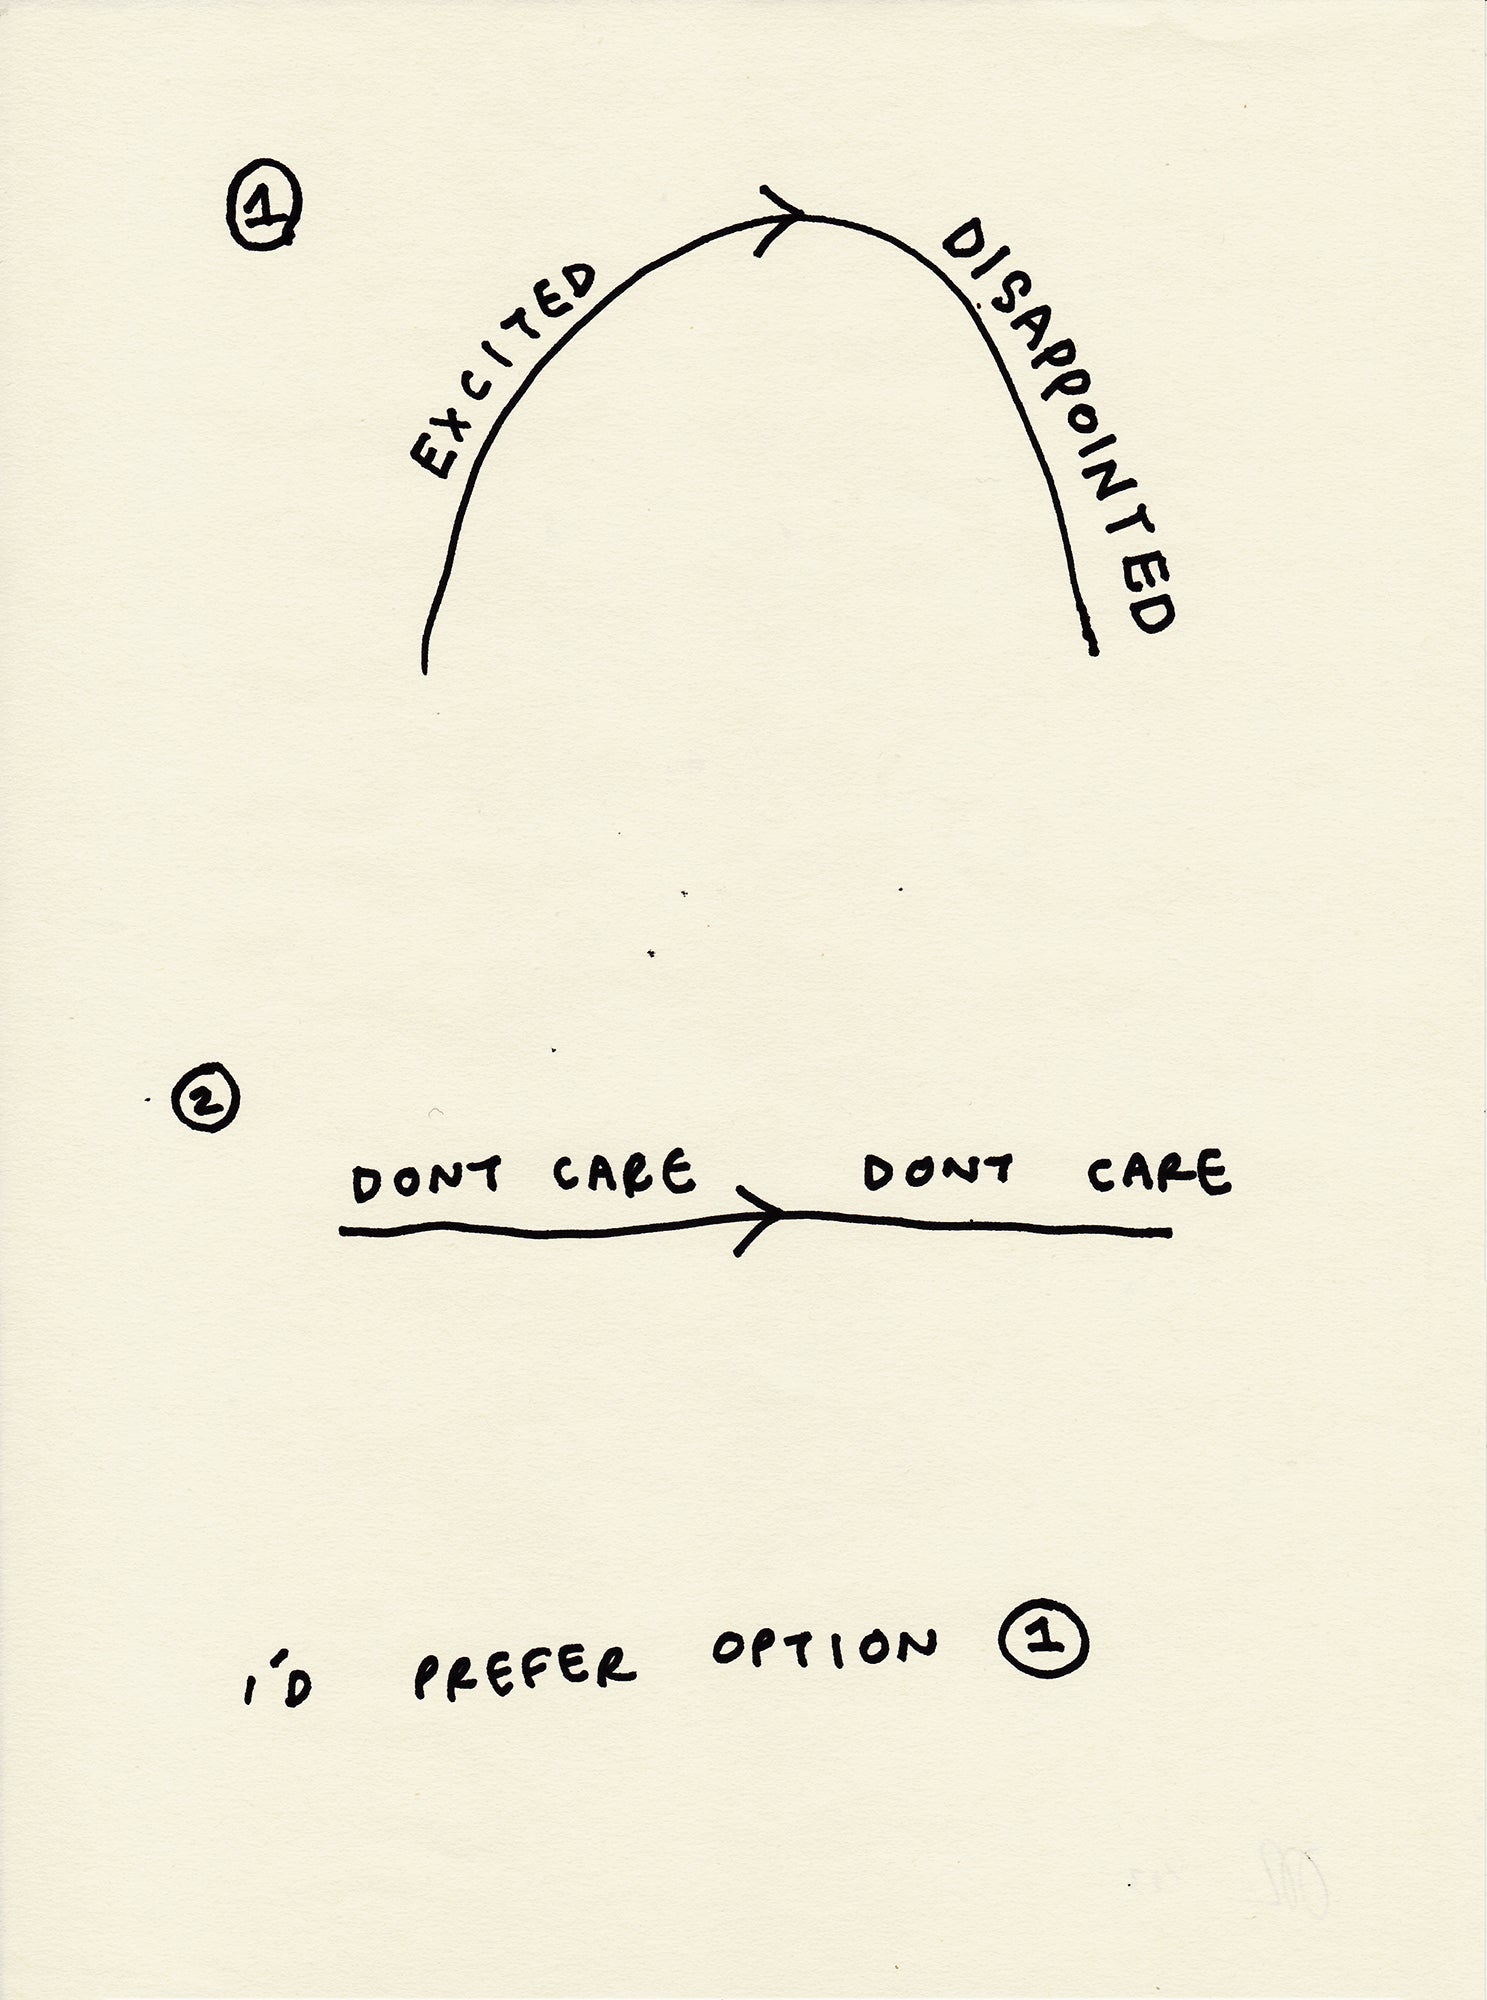 1
EXCITED
DISAPPOINTED
2
DONT CARE DONT CARE
I'D PREFER OPTION 1